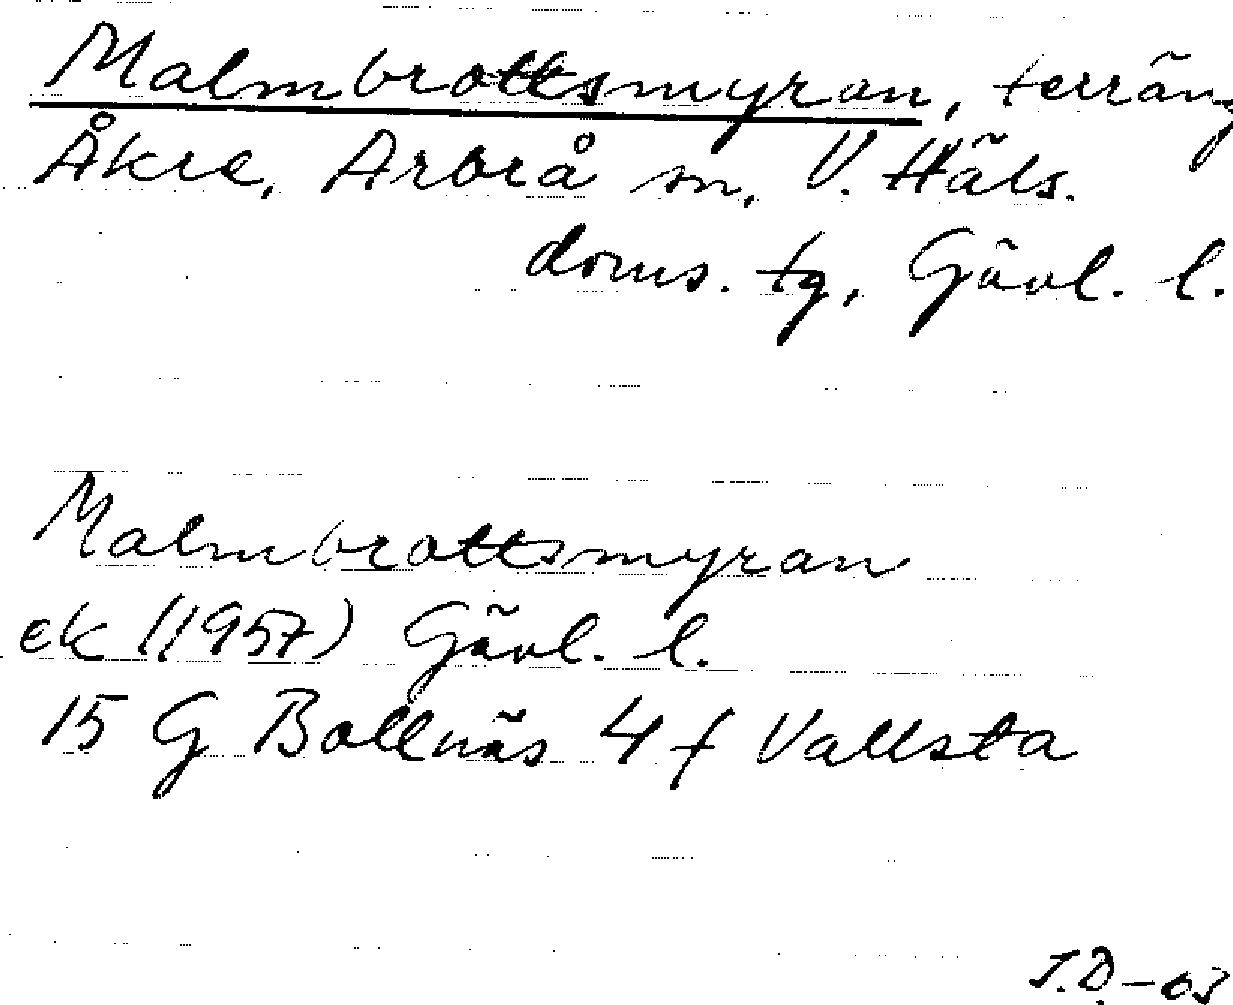 Malmbrottsmyran, terräng
Åkre, Arbrå sn, V. Häls.
doms. tg, Gävl. l.
Malmbrottsmyran
ek (1957) Gävl. l.
15 G Bollnäs 4 f Vallsta
J.D.-03